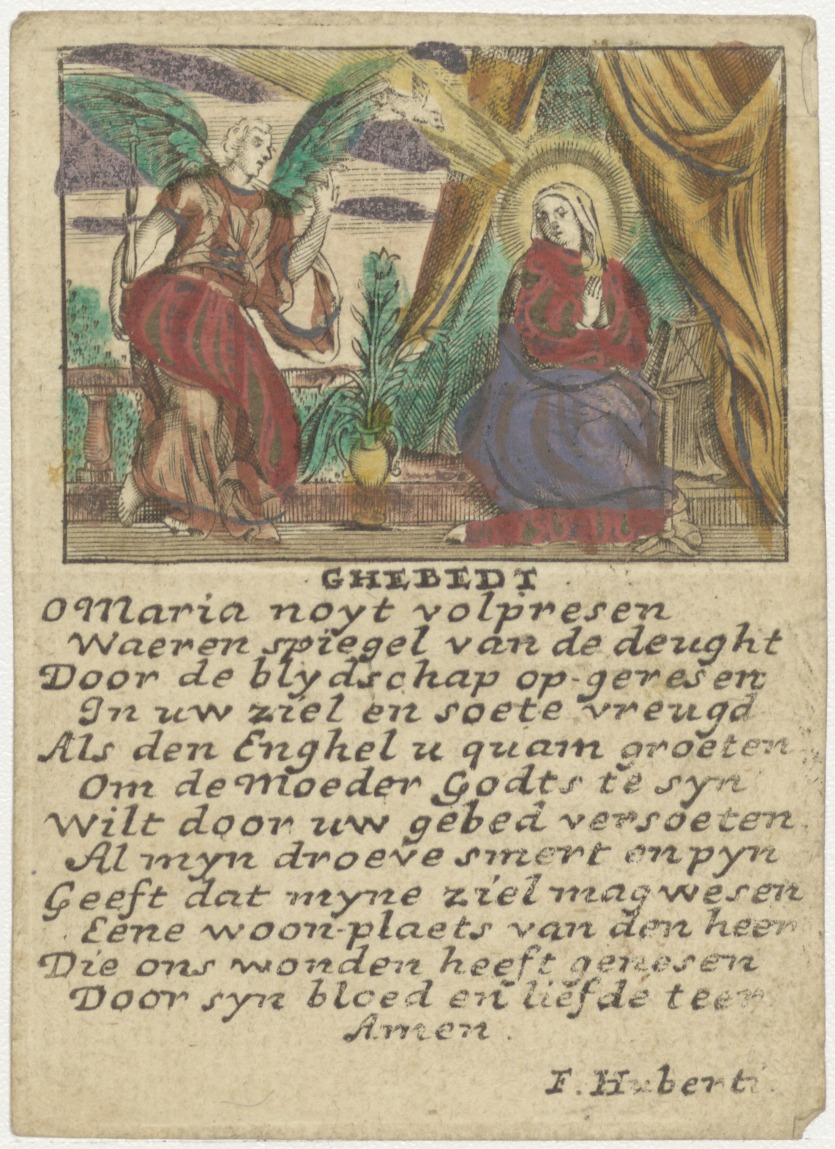 GHEBEDT
O Maria noyt volpresen
Waeren spiegel van de deught
Door de blydschap op-geresen
In uw ziel en soete vreugd
Als den Enghel u quam groeten
Om de Moeder Godts te syn
Wilt door uw gebed versoeten
Al myn droeve smert en pyn
Geeft dat myne ziel mag wesen
Eene woon-plaets van den heer
Die ons wonden heeft genesen
Door syn bloed en liefde teer
Amen.
F. Huberti.